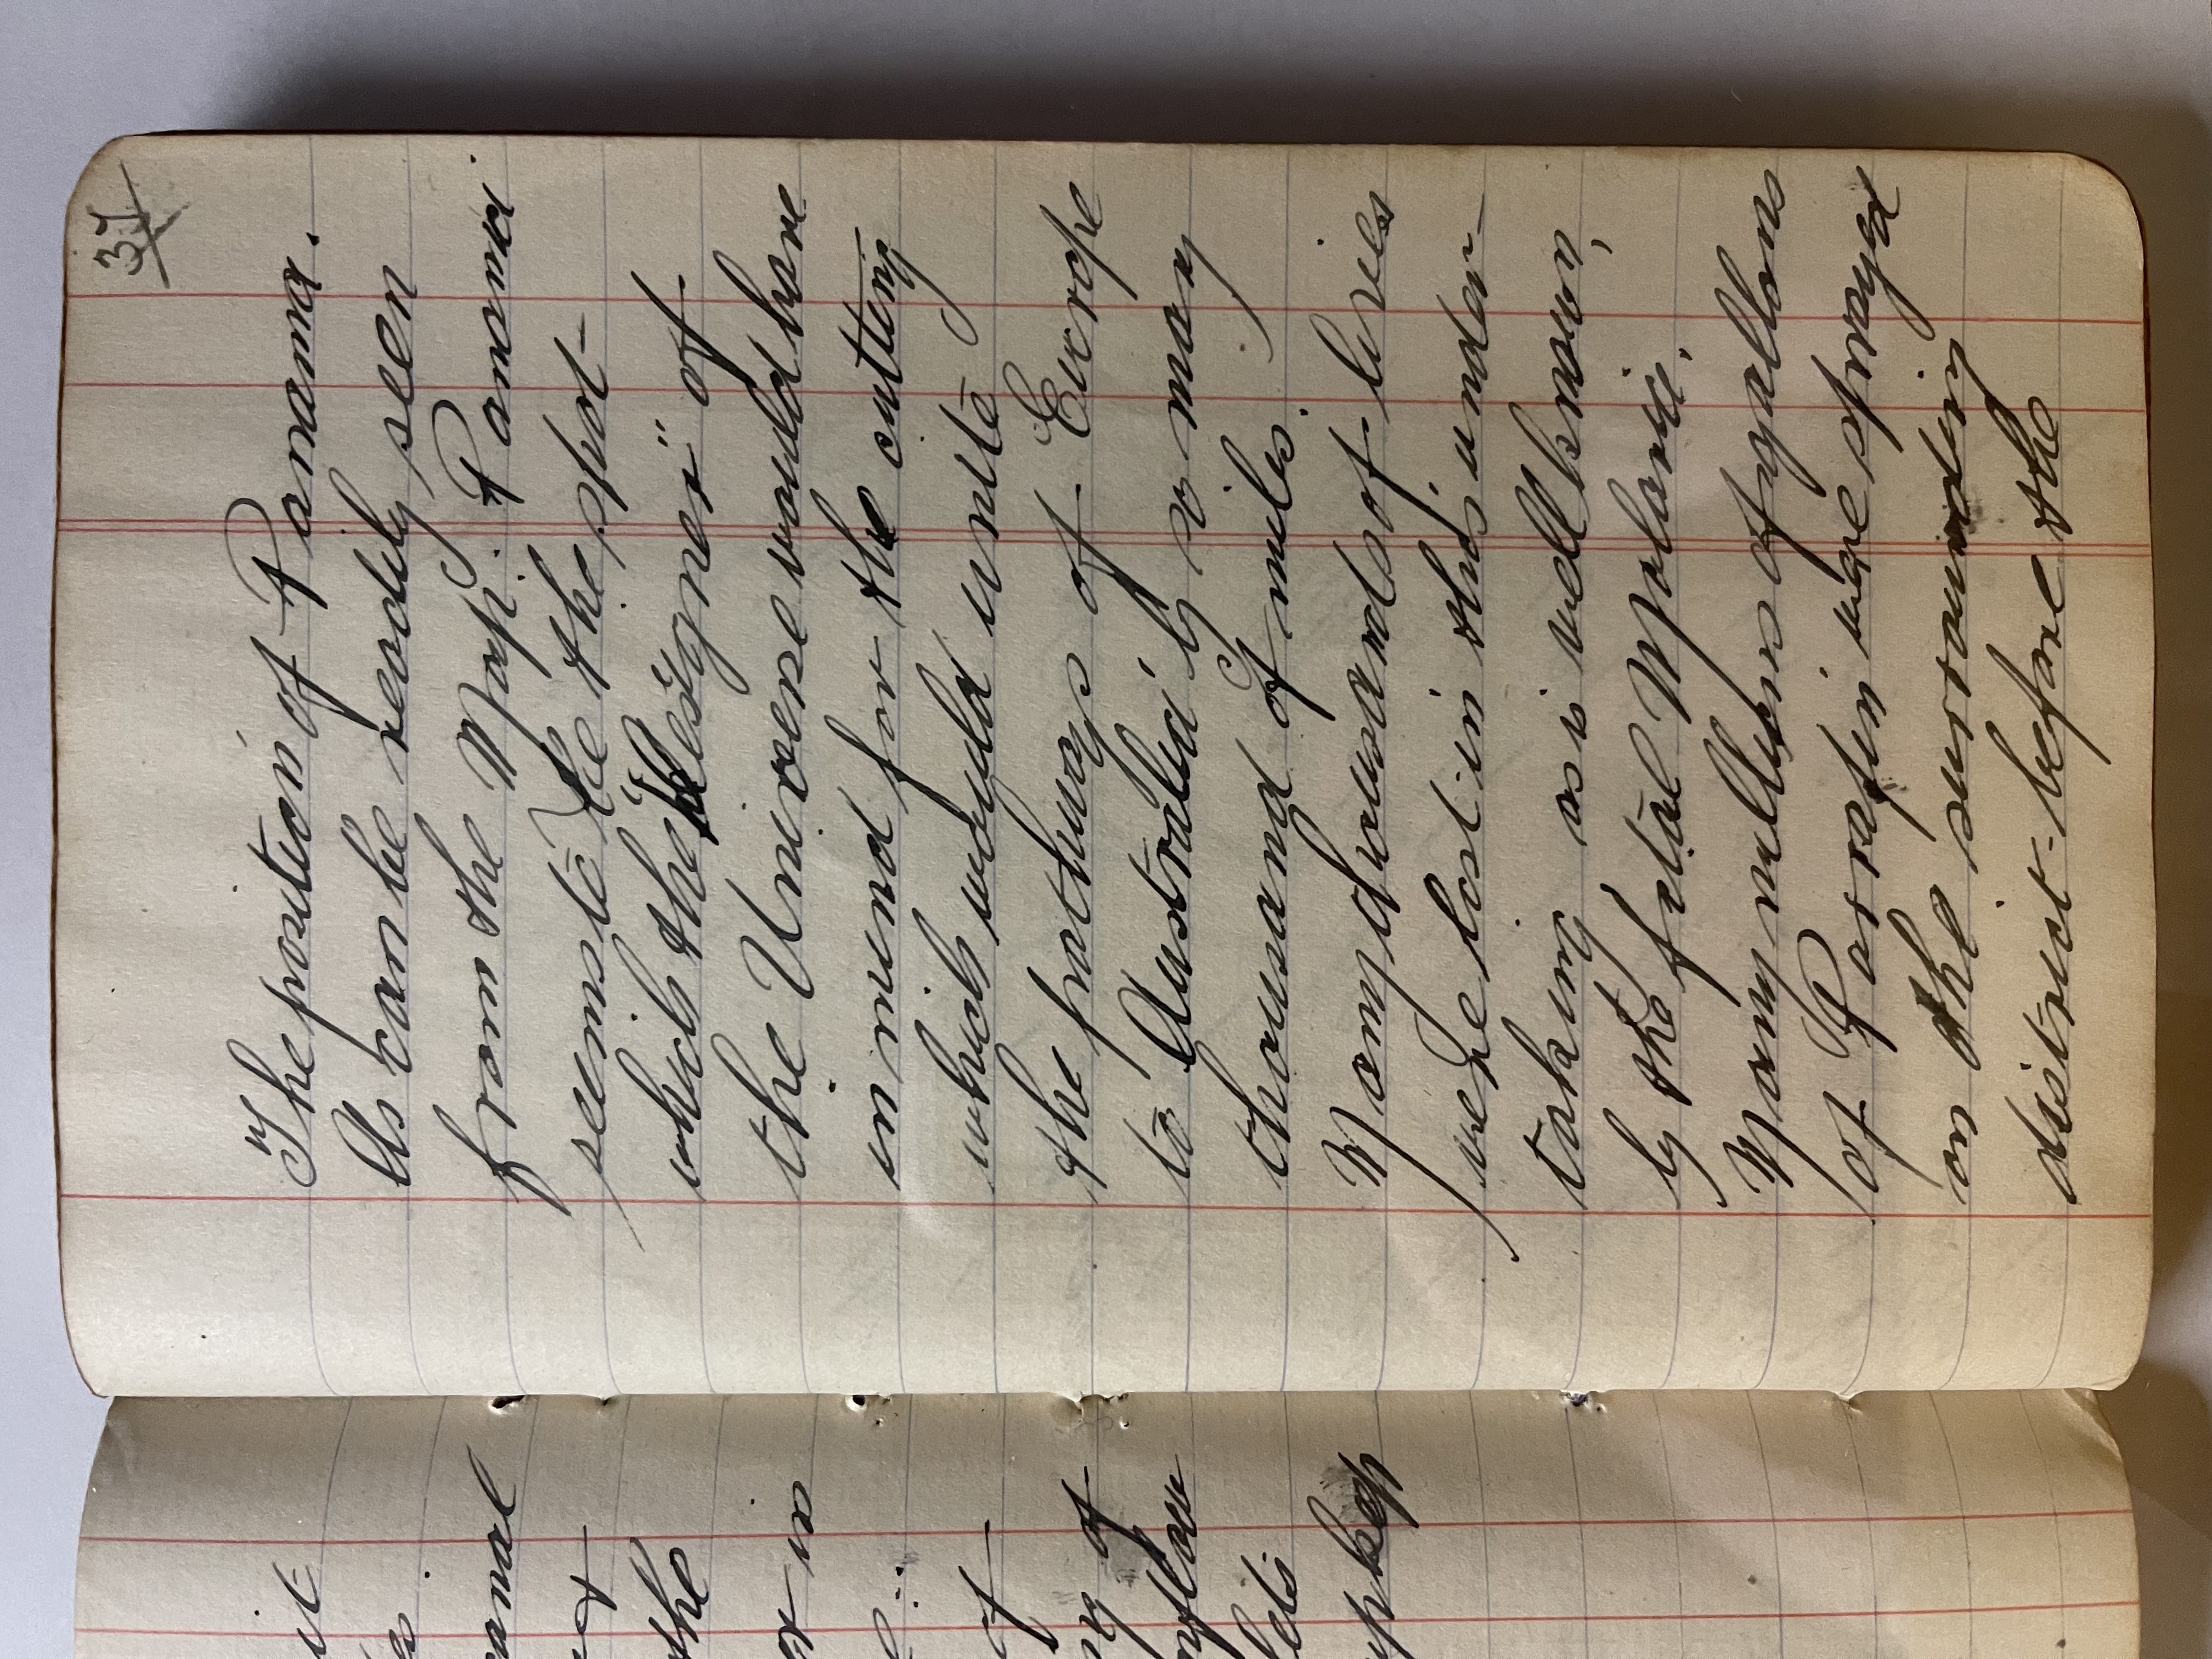 37
The position of Panama.
As can be readily seen
from the Map. Panama
seems to be the spot
which the "Designer" of
the Universe would have
in mind for the cutting
which would unite
the pathways of Europe
to Australia by so many
thousand of miles.
Many thousands of lives
were lost in this under-
taking as is well known,
by the fatal Malaria.
Many millions of gallons
of Parafin were sprayed
on the surrounding
district before the
it
anal
the
or in
of
of